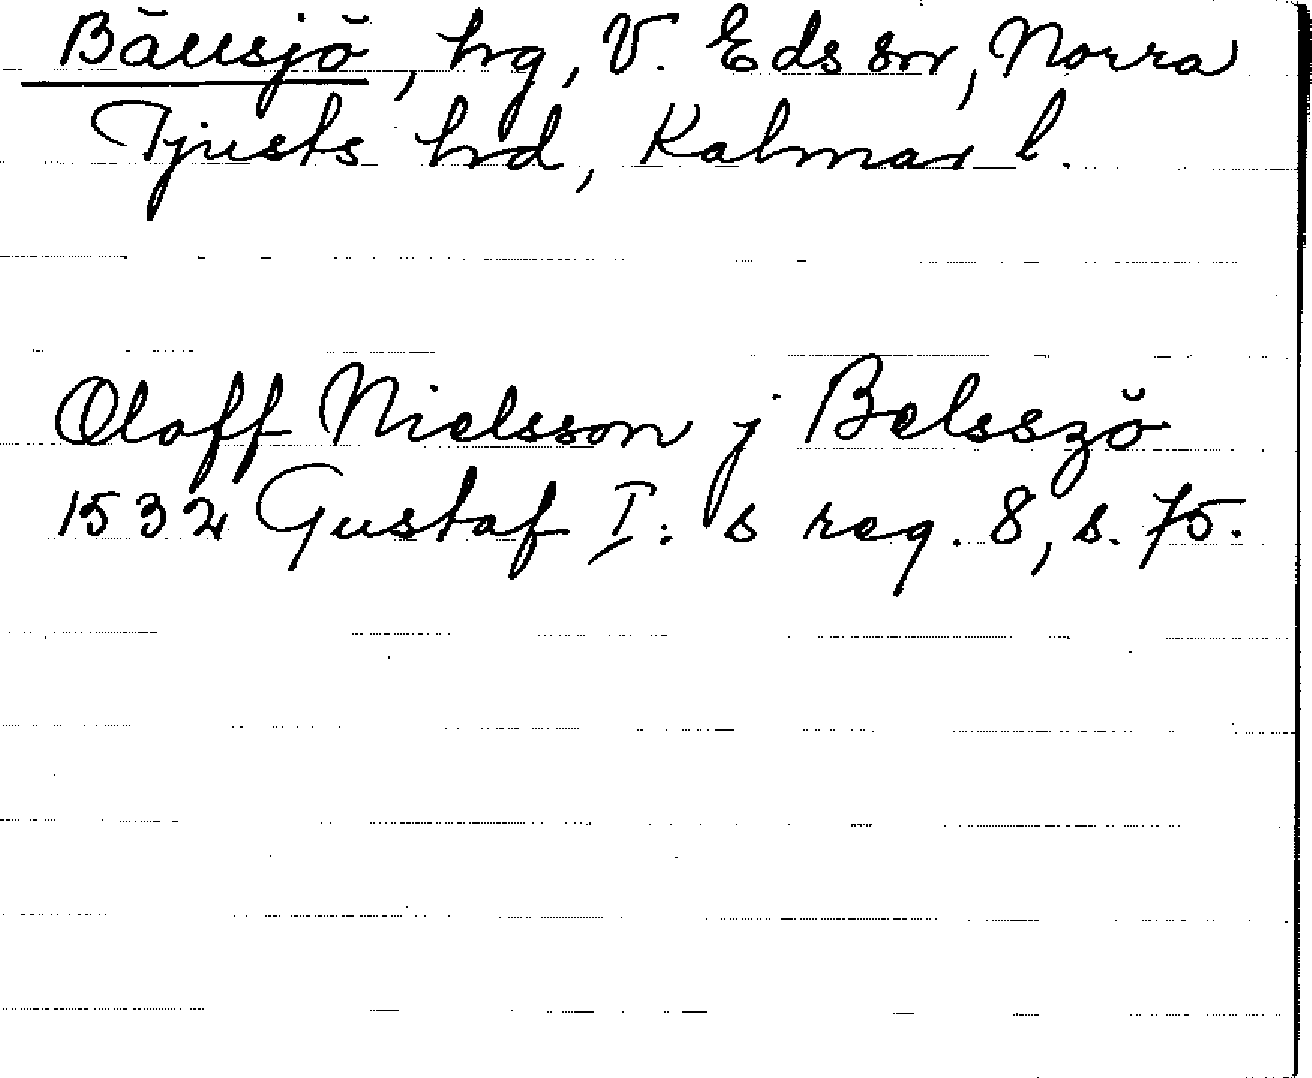 Bällsjö, hrg, V. Eds sn, Norra
Tjusts hrd, Kalmar l.
Oloff Nielsson j Belsszö
1532 Gustaf I:s reg. 8, s. 75.